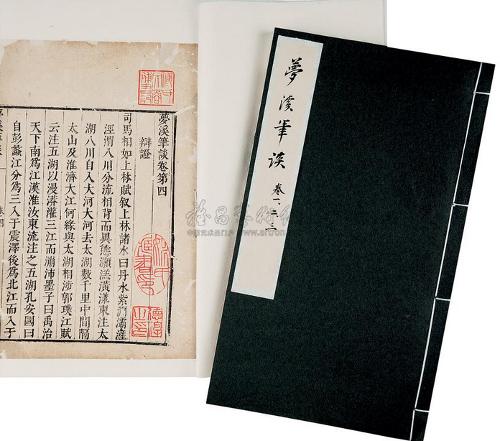 夢溪筆談卷第四
辯證
司馬相如上林賦叙上林諸水曰丹水紫淵灞滻
涇渭八川分流相背而異態灝溔潢漾東注太
湖八川自入大河大河去太湖數千里中間隔
太山及淮濟大江何緣與太湖相涉郭璞江賦
云注五湖以漫漭灌三江而漰沛墨子曰禹治
天下南爲江漢淮汝東流注之五湖孔安國曰
自彭蠡江分爲三入于震澤後爲北江而入于
夢溪筆談
卷一、二、三